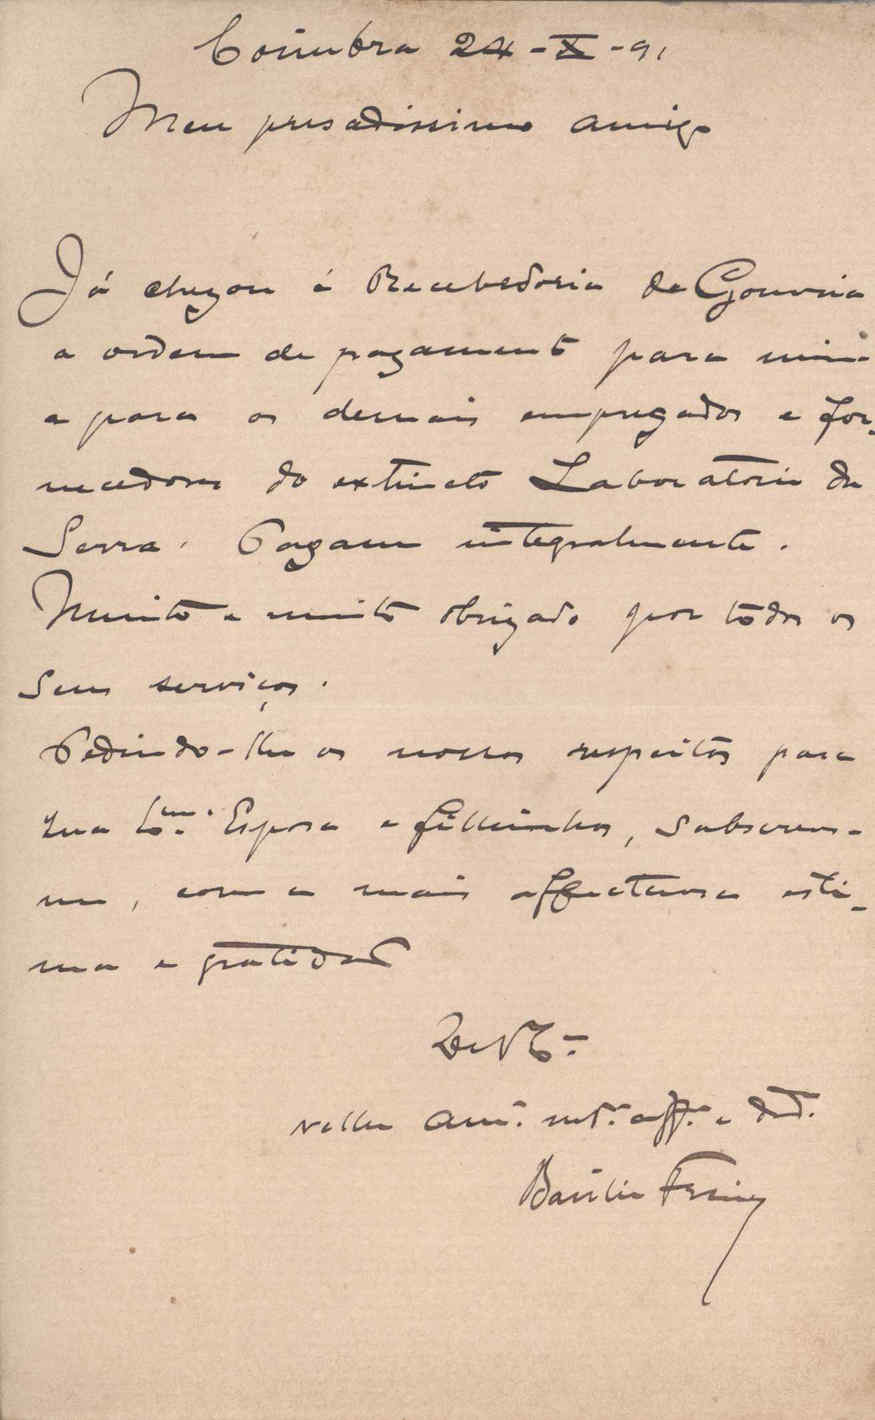 Coimbra 24-X-91
Meu presadissimo amigo
Já chegou á Recebedoria de Gouveia
a ordem de pagamento para mim
e para os demais empregados e for-
necedores do extincto Laboratorio da
Serra. Pagam integralmente.
Muito e muito obrigado por todos os
seus serviços.
Pedindo-lhe os nossos respeitos para
sua Ex.ma Esposa e filhinhos, subscrevo-
me, com a mais affectuosa esti-
ma e gratidão
De V. Ex.
velho am.